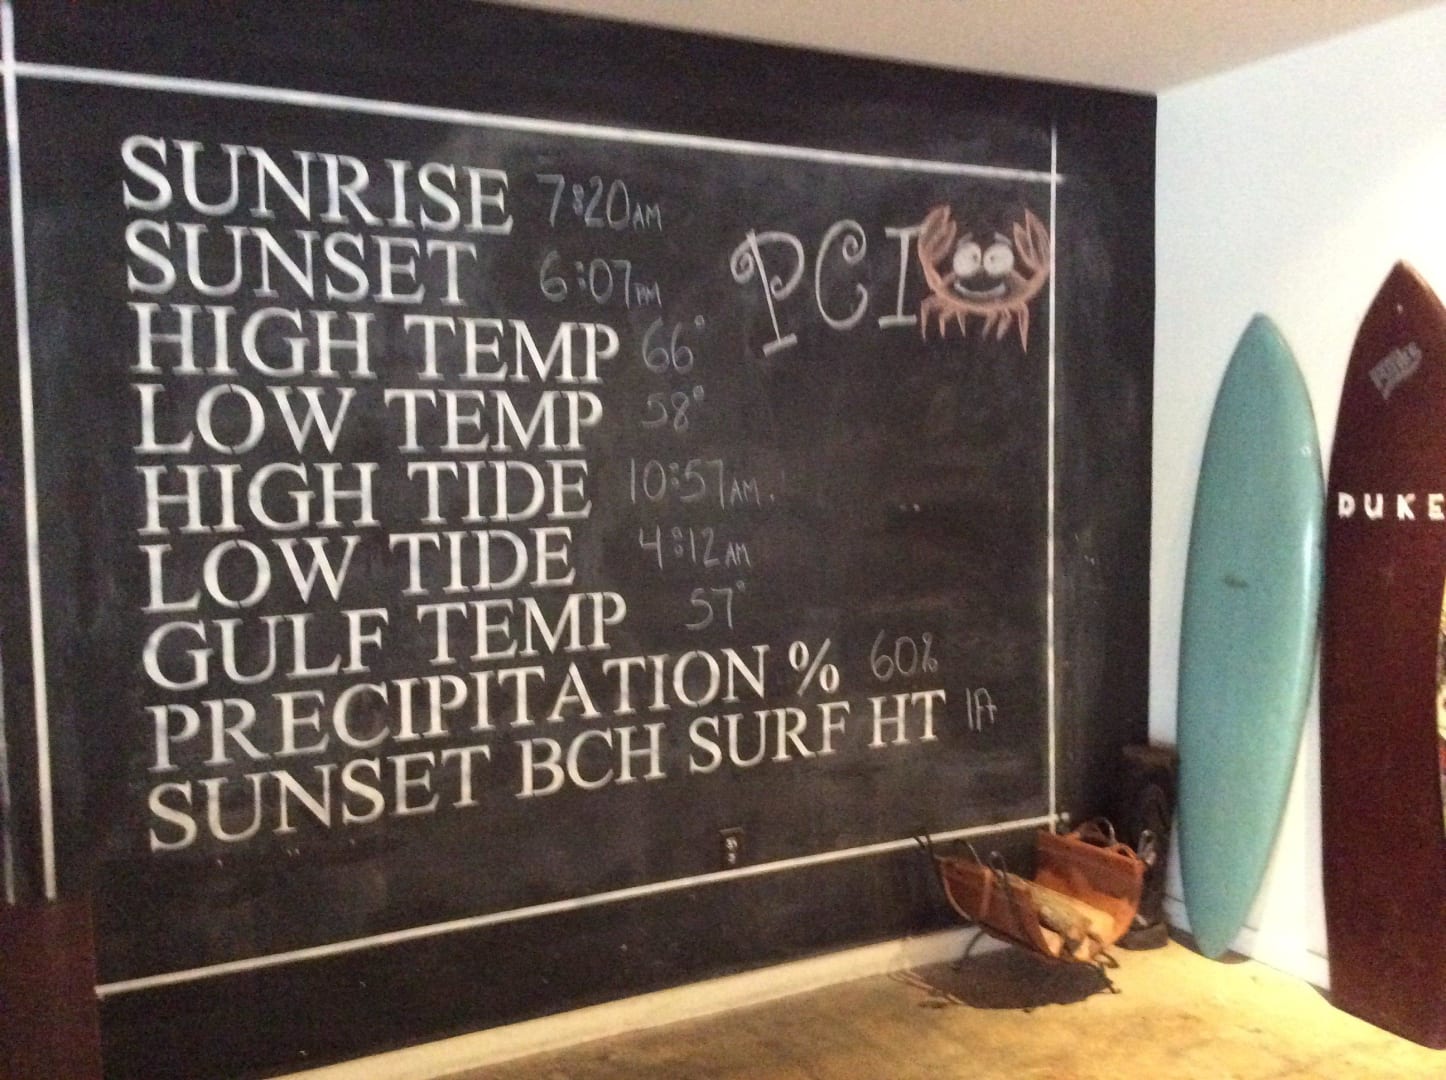 SUNRISE 7:20AM
SUNSET 6:07PM
HIGH TEMP 66°
LOW TEMP 58°
HIGH TIDE 10:57AM.
LOW TIDE 4:12AM
GULF TEMP 57°
PRECIPITATION % 60%
SUNSET BCH SURF HT 1ft
PCI
DUKE